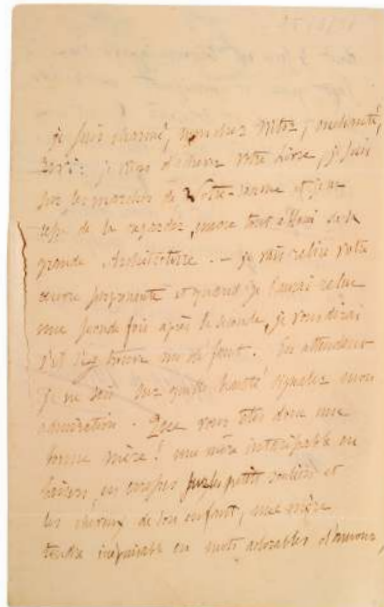 je suis charmé, mon cher Victor, enchanté,
ravi : je viens d'achever votre livre, je suis
sur les marches de Notre-Dame et je ne
cesse de la regarder, encore tout ébloui de sa
grande Architecture. — je vais relire votre
œuvre surprenante et quand je l'aurai relue
une seconde fois après la seconde, je vous dirai
s'il s'y trouve un défaut. En attendant
je ne sais sur quelle beauté signaler mon
admiration. Que vous êtes donc une
bonne mère ! une mère intarissable en
baisers, en caresses sur les petits souliers et
les cheveux de son enfant, une mère
tendre inépuisable en mots adorables d'amour,